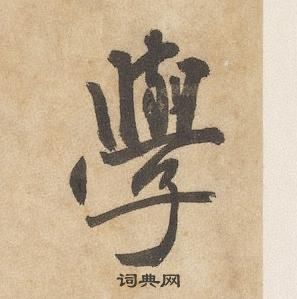 學
词典网